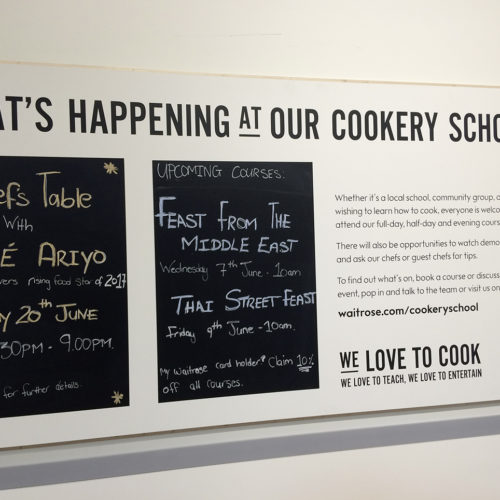 AT'S HAPPENING AT OUR COOKERY SCHO
efs Table
With
É ARIYO
vers rising food star of 2017
Y 20TH JUNE
30PM - 9.00PM.
for further details.
UPCOMING COURSES:
FEAST FROM THE
MIDDLE EAST
Wednesday 7th June - 10am
THAI STREET FEAST
Friday 9th June - 10am.
My Waitrose card holder? Claim 10%
off all courses.
Whether it's a local school, community group, o
wishing to learn how to cook, everyone is welco
attend our full-day, half-day and evening course
There will also be opportunities to watch demo
and ask our chefs or guest chefs for tips.
To find out what's on, book a course or discuss
event, pop in and talk to the team or visit us on
waitrose.com/cookeryschool
WE LOVE TO COOK
WE LOVE TO TEACH, WE LOVE TO ENTERTAIN